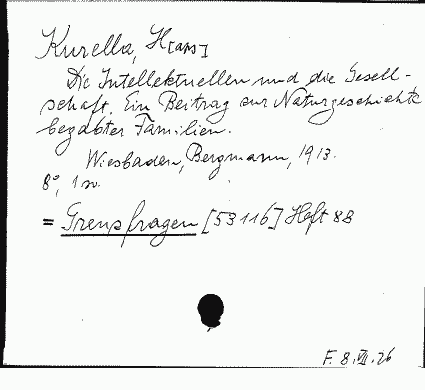 Kurella, H[ans]
Die Intellektuellen und die Gesell-
schaft. Ein Beitrag zur Naturgeschichte
begabter Familien.
Wiesbaden, Bergmann, 1913.
8°, 1 w.
= Grenzfragen [53116] Heft 88
F. 8. VII. 26